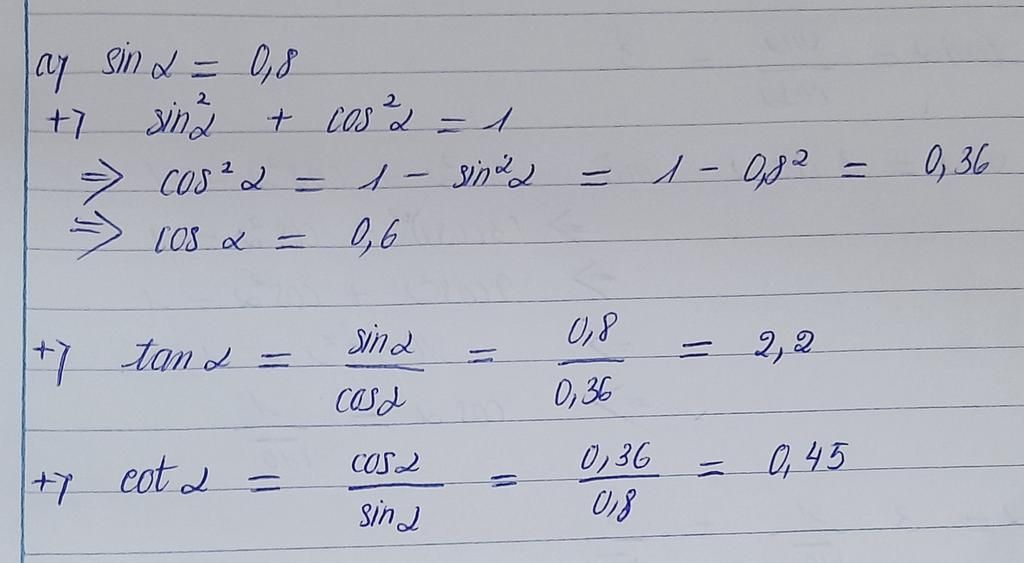 a) sin α = 0,8
+) sin²α + cos²α = 1
⇒ cos²α = 1 - sin²α = 1 - 0,8² = 0,36
⇒ cos α = 0,6
+) tan α = sin α / cos α = 0,8 / 0,36 = 2,2
+) cot α = cos α / sin α = 0,36 / 0,8 = 0,45